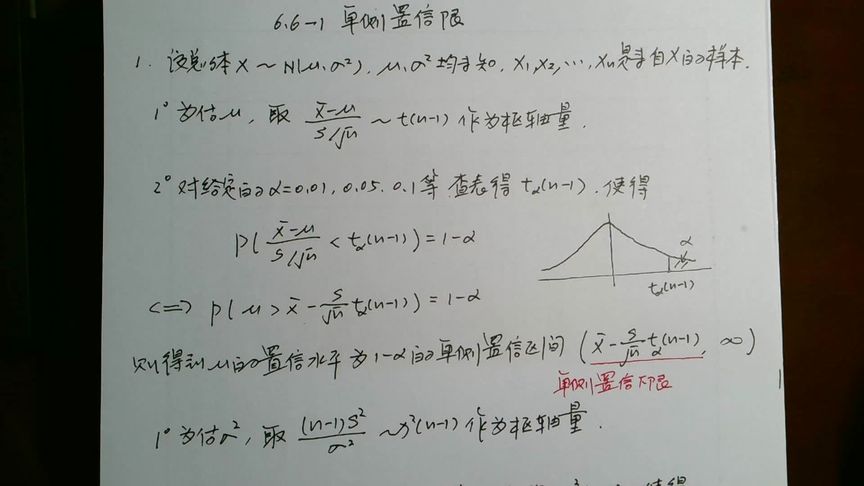 6.6-1 单侧置信限
1. 设总体 X ~ N(μ, σ²), μ, σ² 均未知, X₁, X₂, …, Xₙ 是来自 X 的样本.
1° 为估 μ, 取 (X̄-μ)/(S/√n) ~ t(n-1) 作为枢轴量.
2° 对给定的 α=0.01, 0.05, 0.1 等 查表得 t_α(n-1), 使得
P( (X̄-μ)/(S/√n) < t_α(n-1) ) = 1-α
α
t_α(n-1)
<=> P( μ > X̄ - S/√n t_α(n-1) ) = 1-α
则得到 μ 的置信水平为 1-α 的单侧置信区间 ( X̄ - S/√n t_α(n-1), ∞ )
单侧置信下限
1° 为估 σ², 取 (n-1)S²/σ² ~ χ²(n-1) 作为枢轴量.
使得